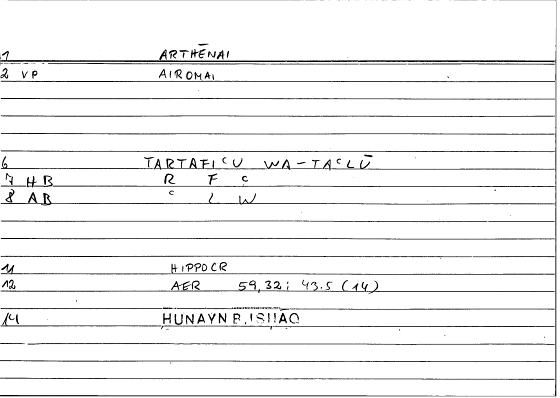 1 ARTHĒNAI
2 VP AIROMAI
6 TARTAFIʿU WA-TAʿLŪ
7 HB R F ʿ
8 AB ʿ L W
11 HIPPOCR
12 AER 59,32; 43.5 (14)
14 HUNAYN B. ISHAQ